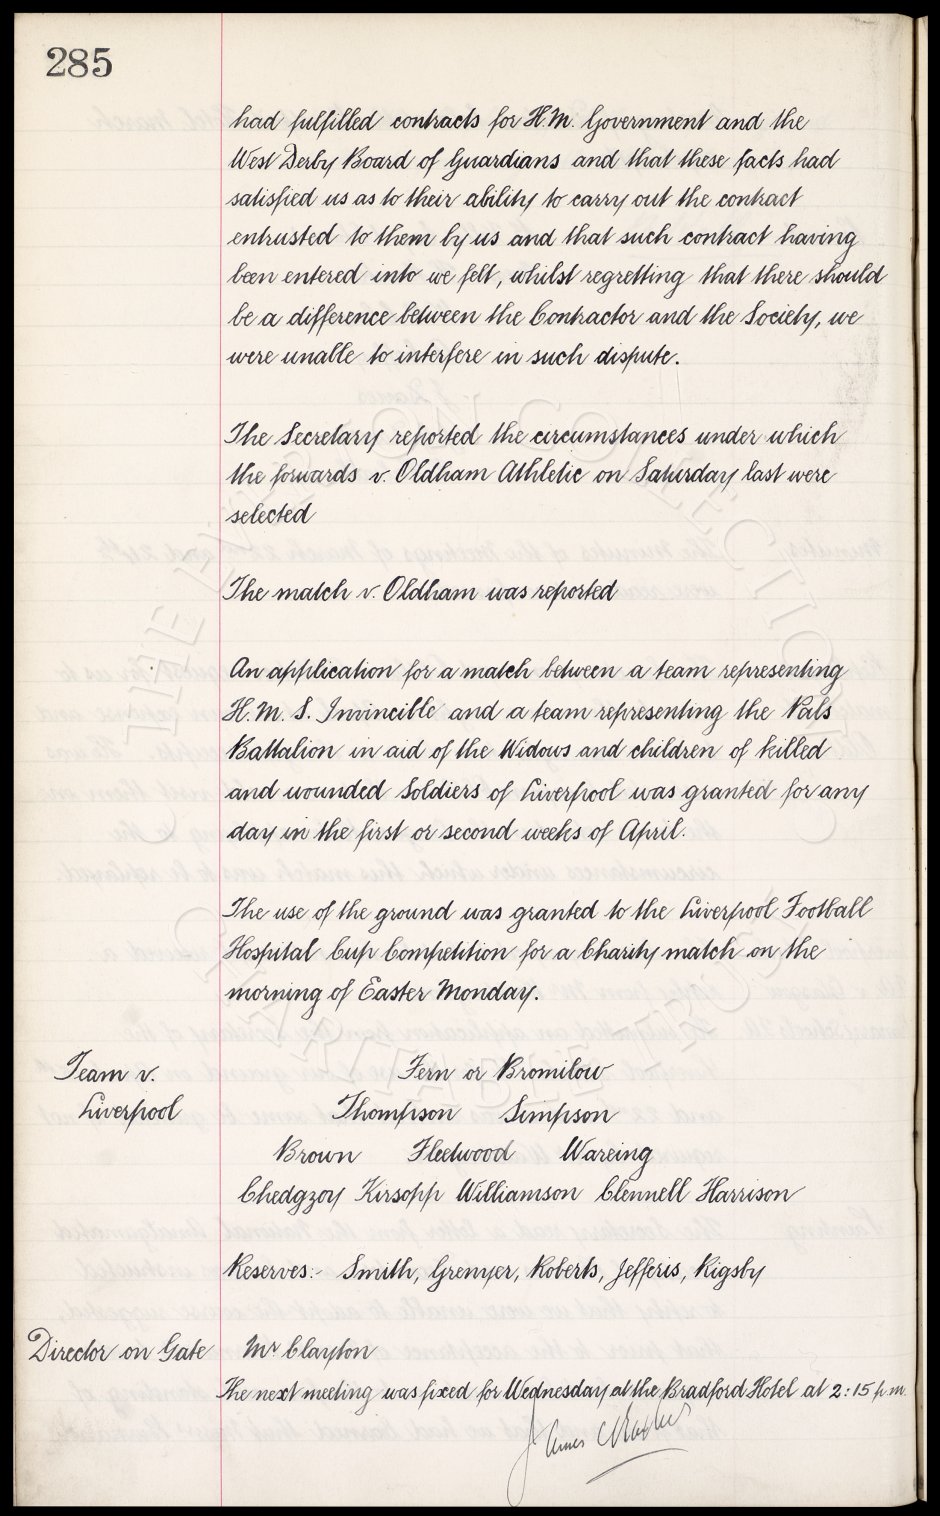 285
had fulfilled contracts for H.M. Government and the
West Derby Board of Guardians and that these facts had
satisfied us as to their ability to carry out the contract
entrusted to them by us and that such contract having
been entered into we felt, whilst regretting that there should
be a difference between the Contractor and the Society, we
were unable to interfere in such dispute.
The Secretary reported the circumstances under which
the forwards v. Oldham Athletic on Saturday last were
selected
The match v. Oldham was reported
An application for a match between a team representing
H.M.S. Invincible and a team representing the Pals
Battalion in aid of the Widows and children of killed
and wounded Soldiers of Liverpool was granted for any
day in the first or second weeks of April.
The use of the ground was granted to the Liverpool Football
Hospital Cup Competition for a Charity match on the
morning of Easter Monday.
Team v. Fern or Bromilow
Liverpool Thompson Simpson
Brown Fleetwood Wareing
Chedgzoy Kirsopp Williamson Clennell Harrison
Reserves:- Smith, Grenyer, Roberts, Jefferis, Rigsby
Director on Gate Mr Clayton
The next meeting was fixed for Wednesday at the Bradford Hotel at 2:15 p.m.
James C Baxter
THE EVERTON COLLECTION
CHARITABLE TRUST